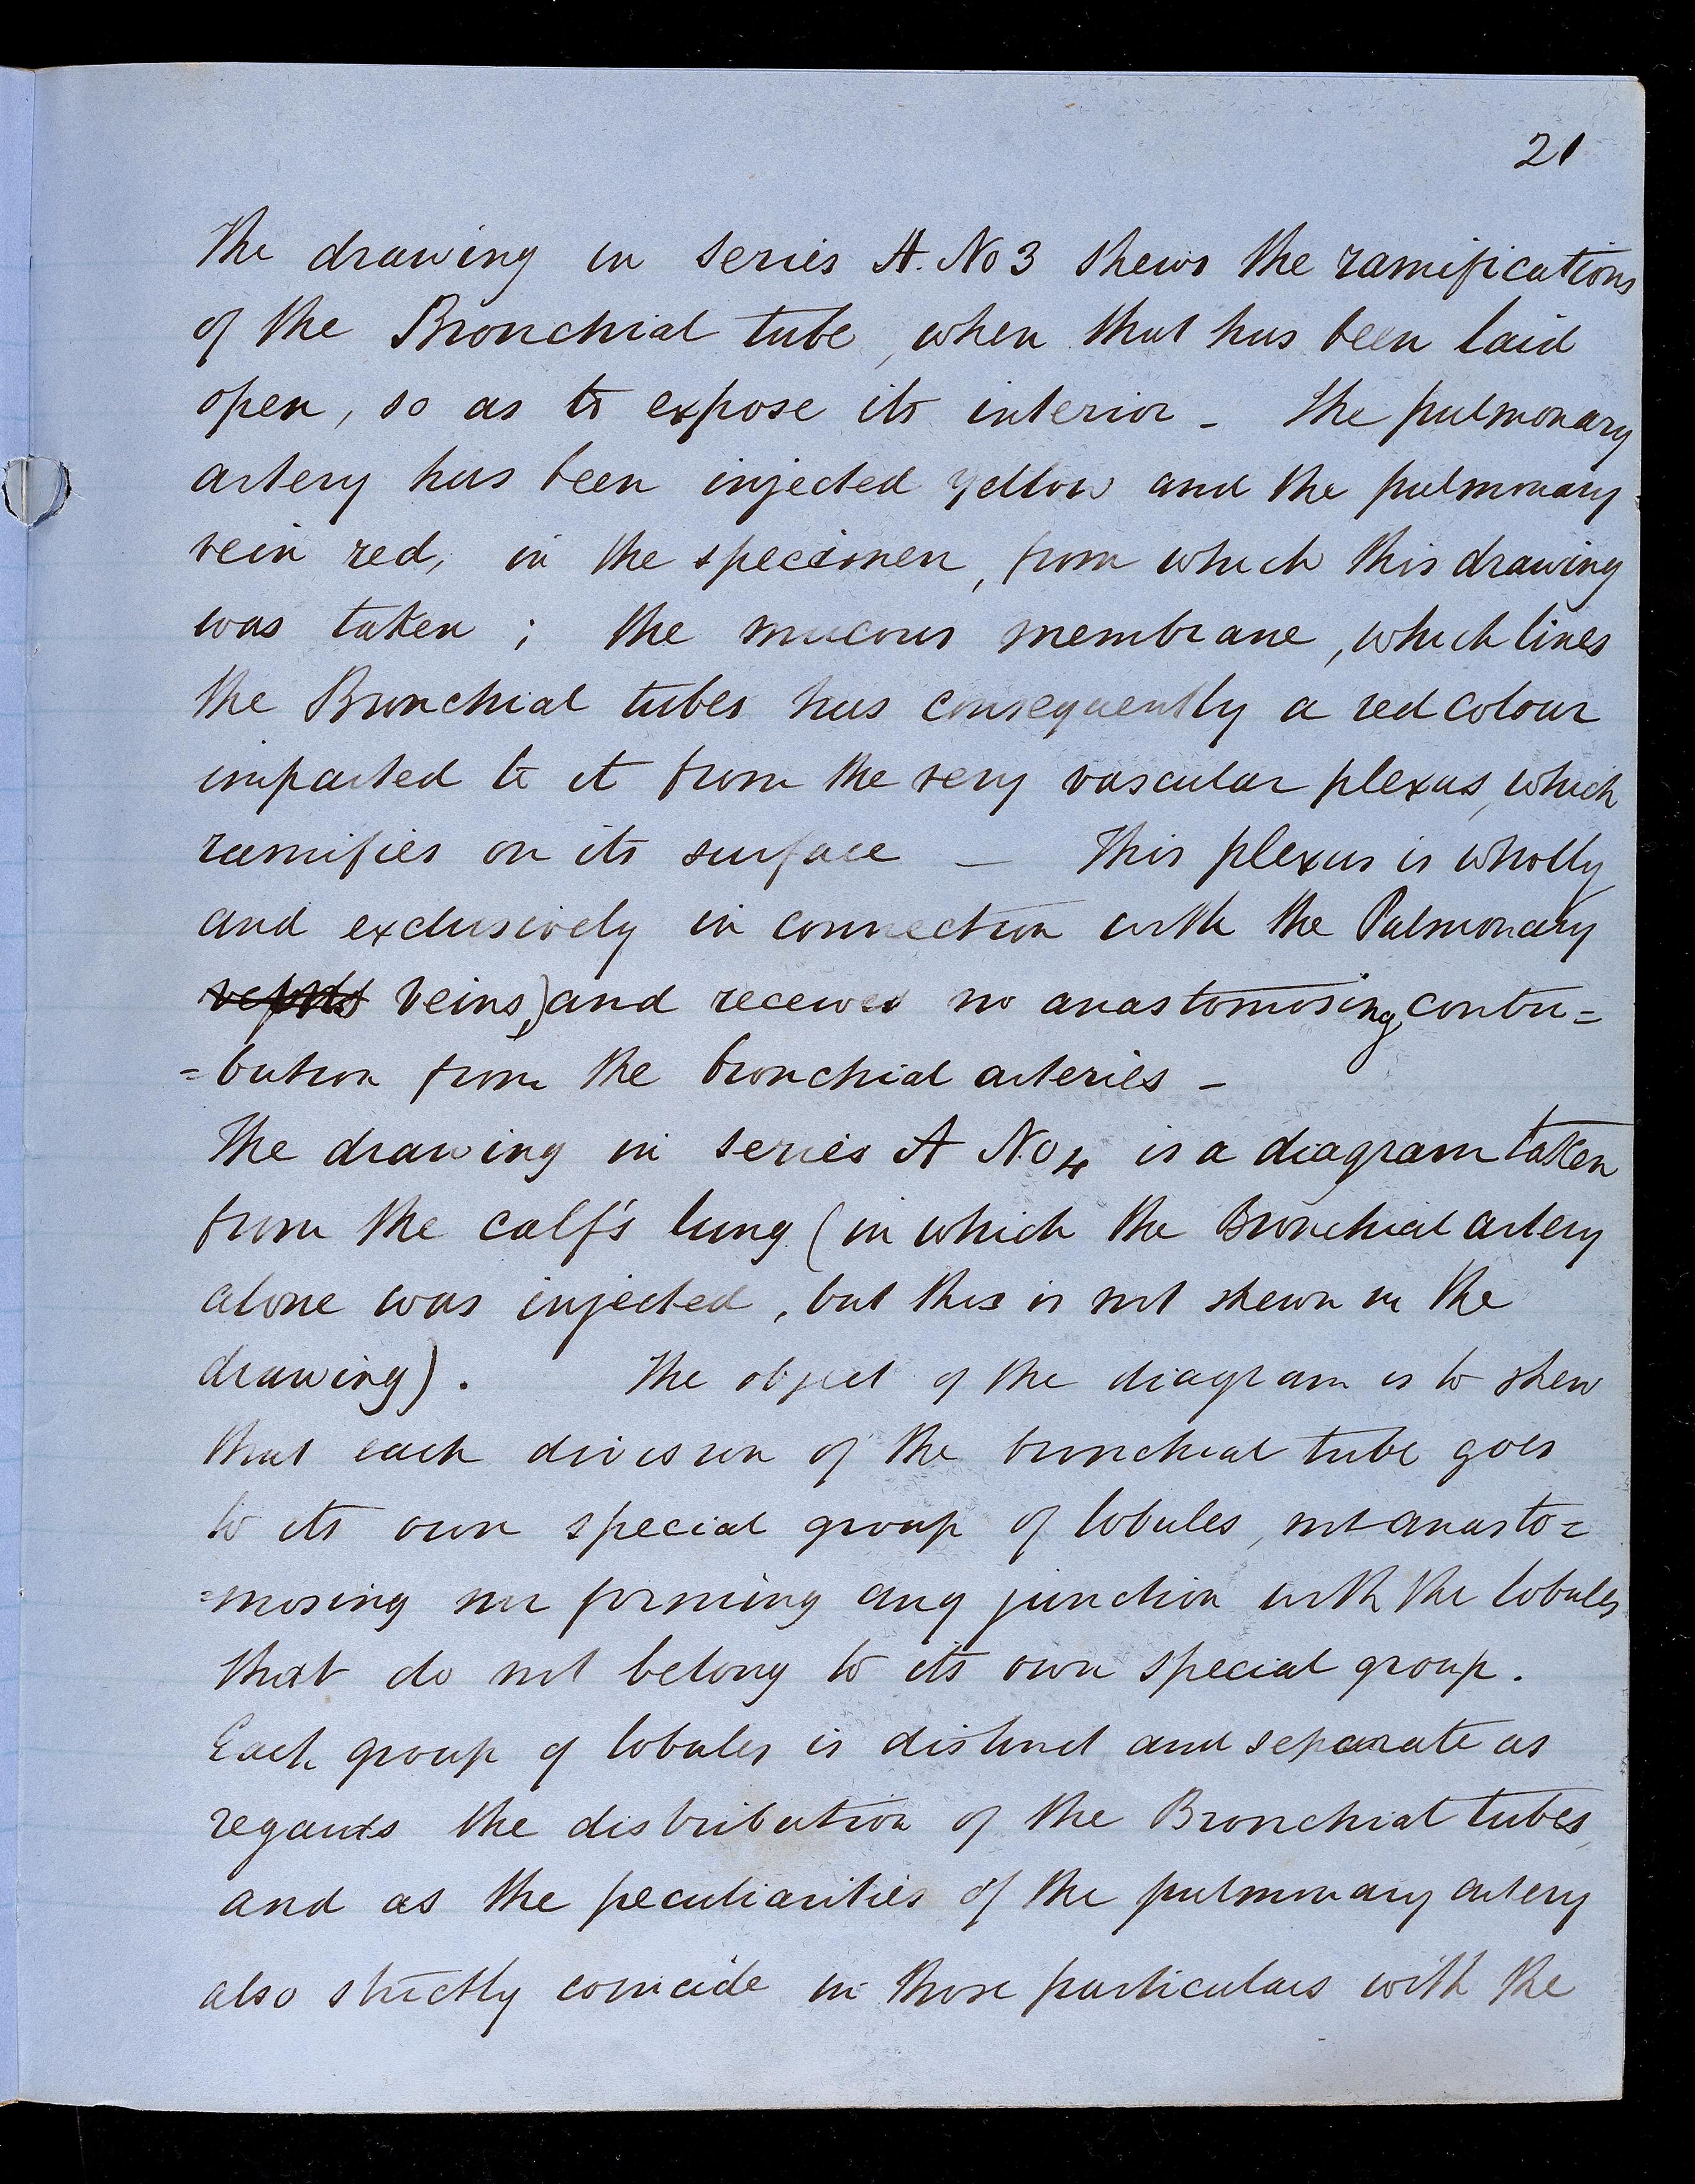 21
The drawing in series A. No 3 shews the ramifications
of the Bronchial tube, when that has been laid
open, so as to expose its interior - The pulmonary
artery has been injected yellow and the pulmonary
vein red, in the specimen, from which this drawing
was taken ; the mucous membrane, which lines
the Bronchial tubes has consequently a red colour
imparted to it from the very vascular plexus, which
ramifies on its surface — This plexus is wholly
and exclusively in connection with the Pulmonary
veins,) and receives no anastomosing contri=
=bution from the bronchial arteries -
The drawing in series A No 4 is a diagram taken
from the calf's lung (in which the Bronchial artery
alone was injected, but this is not shewn in the
drawing). The object of the diagram is to shew
that each division of the bronchial tube goes
to its own special group of lobules, not anasto=
=mosing nor forming any junction with the lobules
that do not belong to its own special group.
Each group of lobules is distinct and separate as
regards the distribution of the Bronchial tubes,
and as the peculiarities of the pulmonary artery
also strictly coincide in those particulars with the